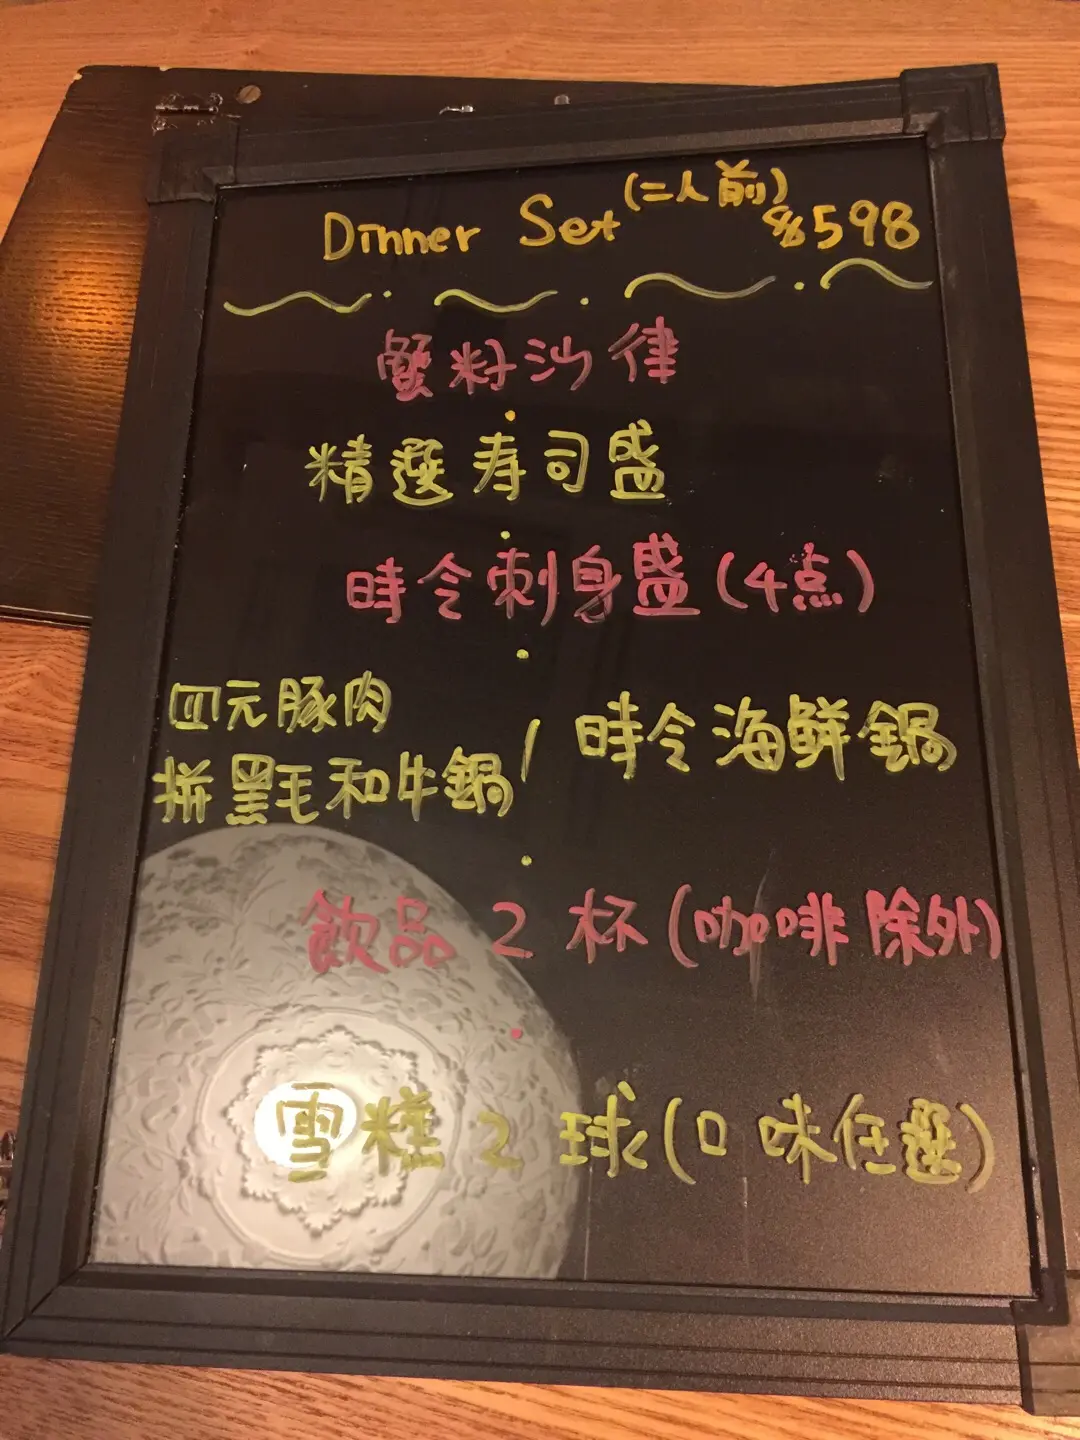 Dinner Set (二人前) $598
蟹籽沙律
精選寿司盛
時令刺身盛(4点)
四元豚肉
拼黑毛和牛鍋 / 時令海鮮鍋
飲品 2 杯(咖啡除外)
雪糕 2 球(口味任選)